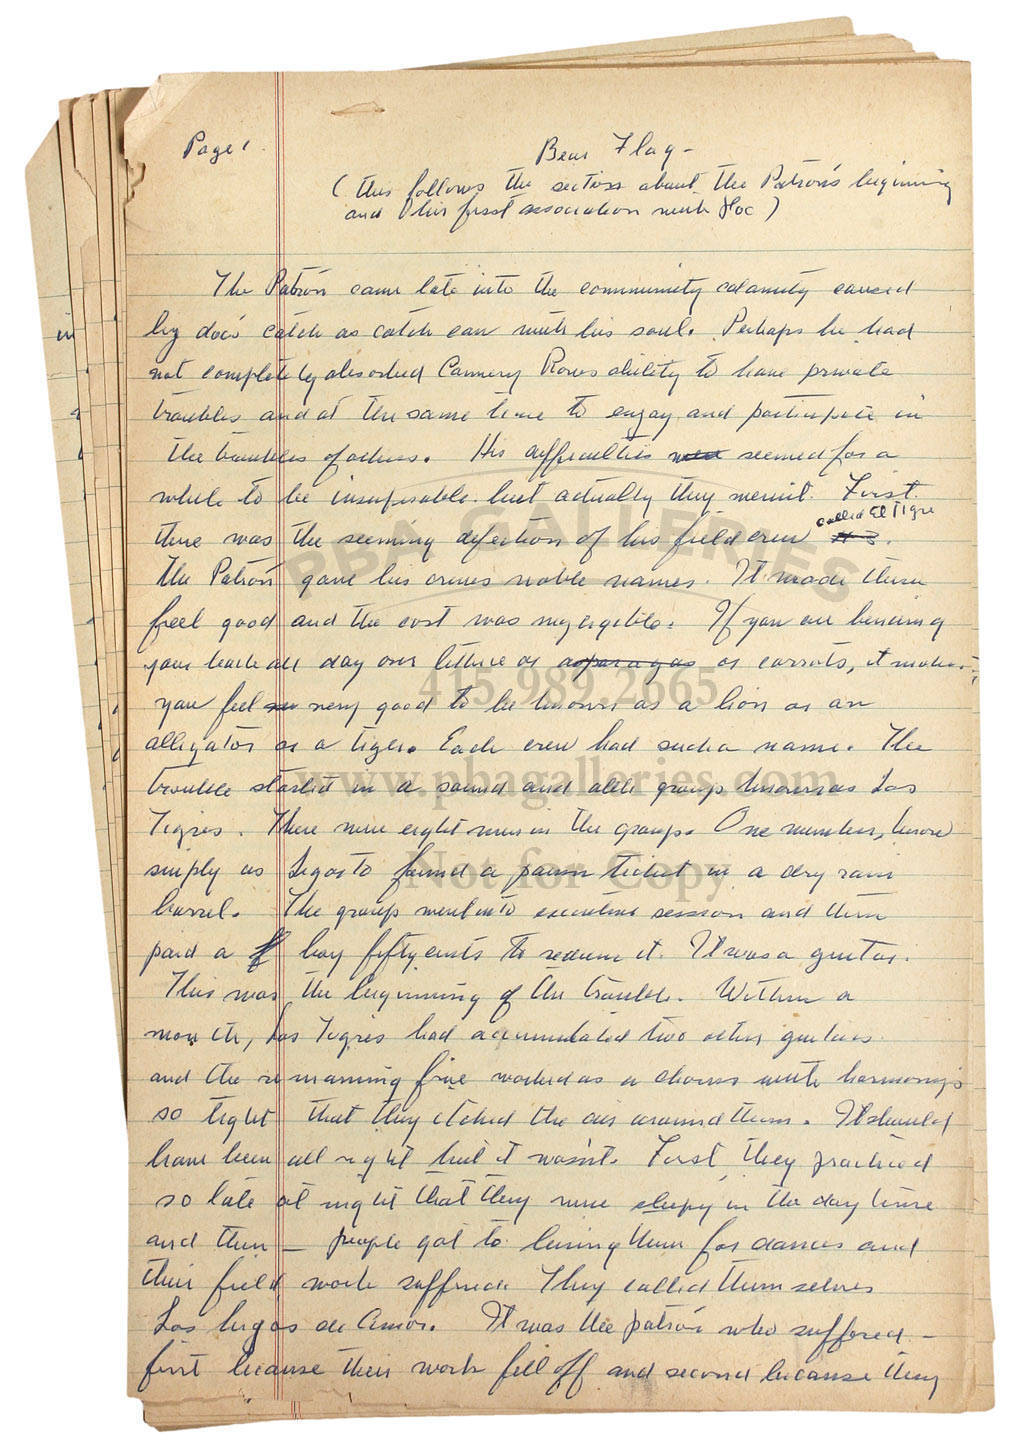 Page 1.
Bear Flag -
( this follows the section about the Patrón's beginning
and his first association with Doc )
The Patrón came late into the community calamity caused
by doc's catch as catch can with his soul. Perhaps he had
not completely absorbed Cannery Rows ability to have private
troubles and at the same time to enjoy and participate in
the troubles of others. His difficulties were seemed for a
while to be insuperable but actually they weren't. First
called El Tigre
there was the seeming defection of his field crew
The Patrón gave his crews noble names. It made them
feel good and the cost was negligible. If you are bending
your back all day over lettuce or asparagas or carrots, it makes
you feel very good to be known as a lion or an
alligator or a tiger. Each crew had such a name. The
trouble started in a sound and able group known as Los
Tigres. There were eight men in the group. One member, known
simply as found a pawn ticket in a dry rain
barrel. The group went into executive session and then
paid a boy fifty cents to redeem it. It was a guitar.
This was the beginning of the trouble. Within a
month, Los Tigres had accumulated two other guitars
and the remaining five worked as a chorus with harmony's
so tight that they itched the air around them. It should
have been all right but it wasn't. First they practiced
so late at night that they were sleepy in the day time
and then — people got to hiring them for dances and
their field work suffered. They called themselves
Los de Amor. It was the patrón who suffered -
first because their work fell off and second because they
PBA GALLERIES
415.989.2665
www.pbagalleries.com
Not for Copy